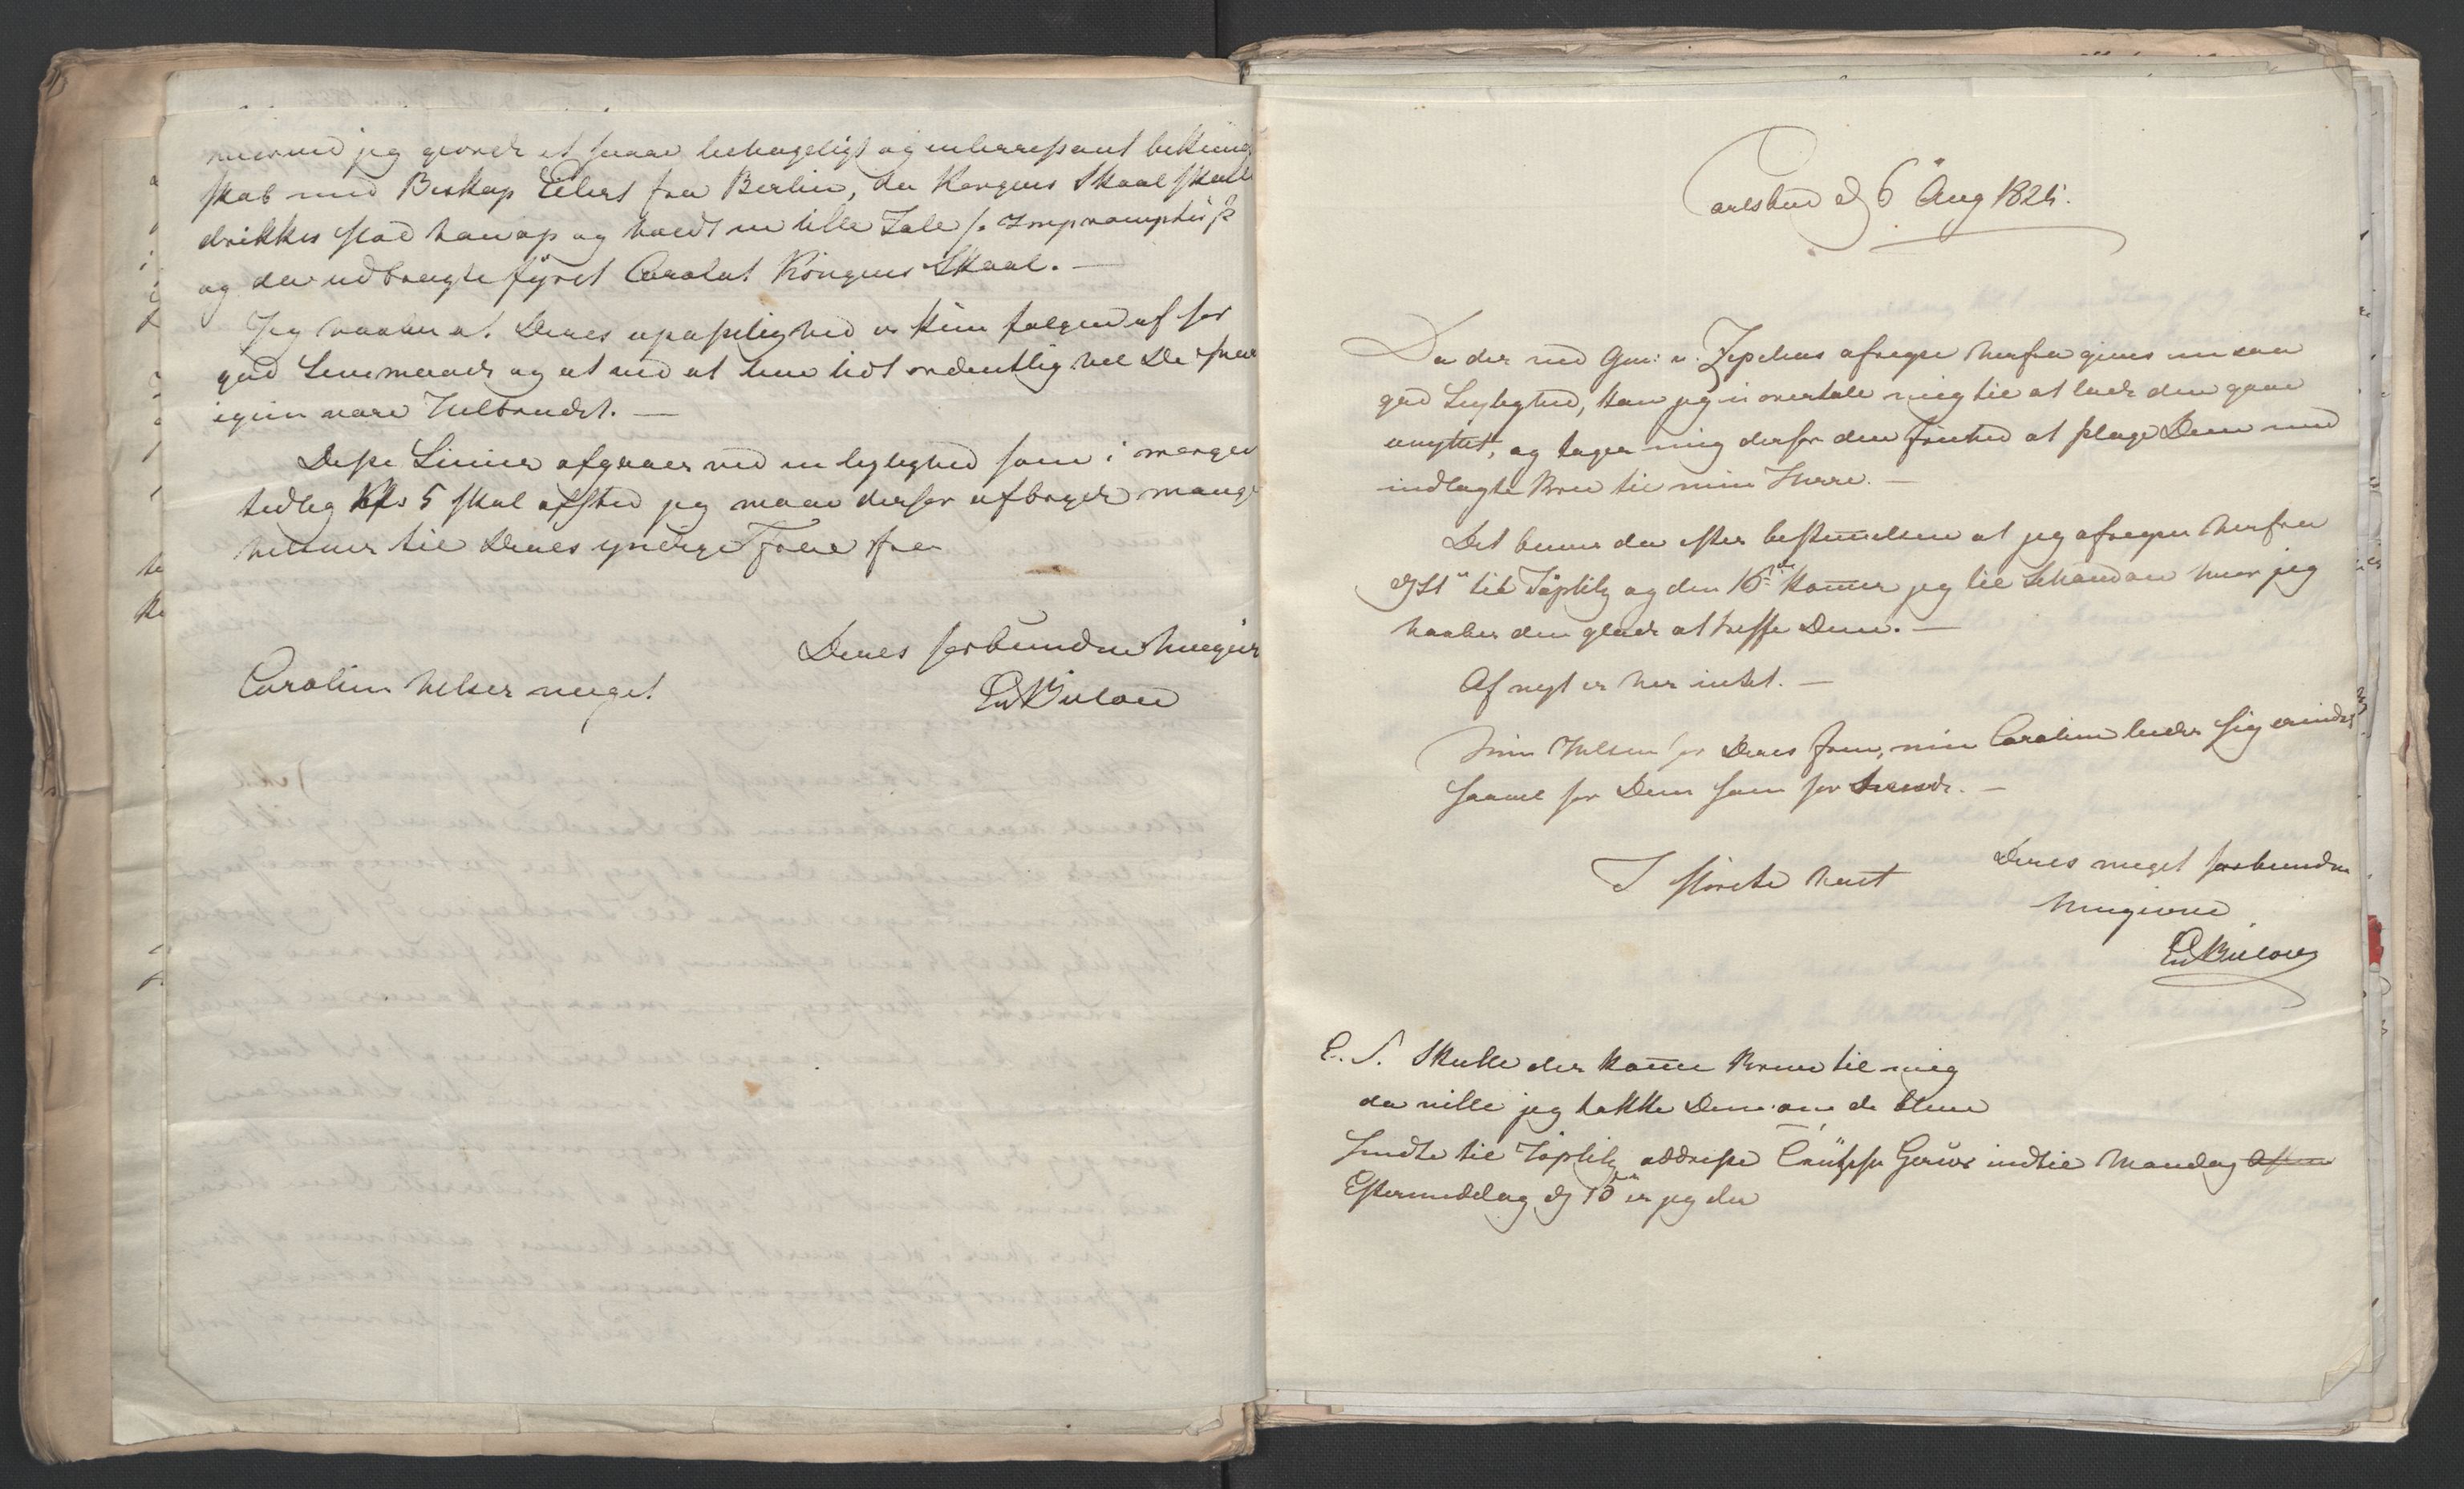 hvormed jeg giorde et saare behageligt og interressant bekiendt
skab med Biskop Eilert fra Berlin, da Kongens Skaal skulle
drikkes stod han op og holdt en lille Tale /: Impromptüs :/
og da udbragte fyrst Carolat Kongens Skaal. —
Jeg haaber at Deres upasselighed er kun følgen af for
god Levemaade og at ved at leve lidt ordentlig vil De snar
igien være Helbredet. —
Disse Linier afgaaer ved en leylighed som i morgen
tidlig Kl. 5 skal afsted jeg maae derfor afbryde mange
hilsner til Deres yndige Frue fra
Deres forbundne hengivne
Caroline hilser meget
EvBülow
Carlsbad d 6 Aug 1825.
Da der ved Gen: v. Zepelins afreyse herfra gives en saa
god Leylighed, kan jeg ei overtale mig til at lade den gaae
unyttet, og tager mig derfor den friehed at plage Dem med
indlagte Brev til min Herre. —
Det bliver da efter bestemelsen at jeg afreyser herfra
d 11 til Töplitz og den 16de komer jeg til Schandau hvor jeg
haaber den glæde at treffe Dem. —
Af nyt er her intet. —
Min Hilsen for Deres frue, min Caroline lader sig erindre
saavel for Dem som for hende. —
I største hast
Deres meget forbundne
hengivne
EvBülow
P. S. Skulle der kome Breve til mig
da ville jeg takke Dem om de bleve
sendte til Töplitz addresse indtil Mandag Aften
Eftermiddag d 15 er jeg der